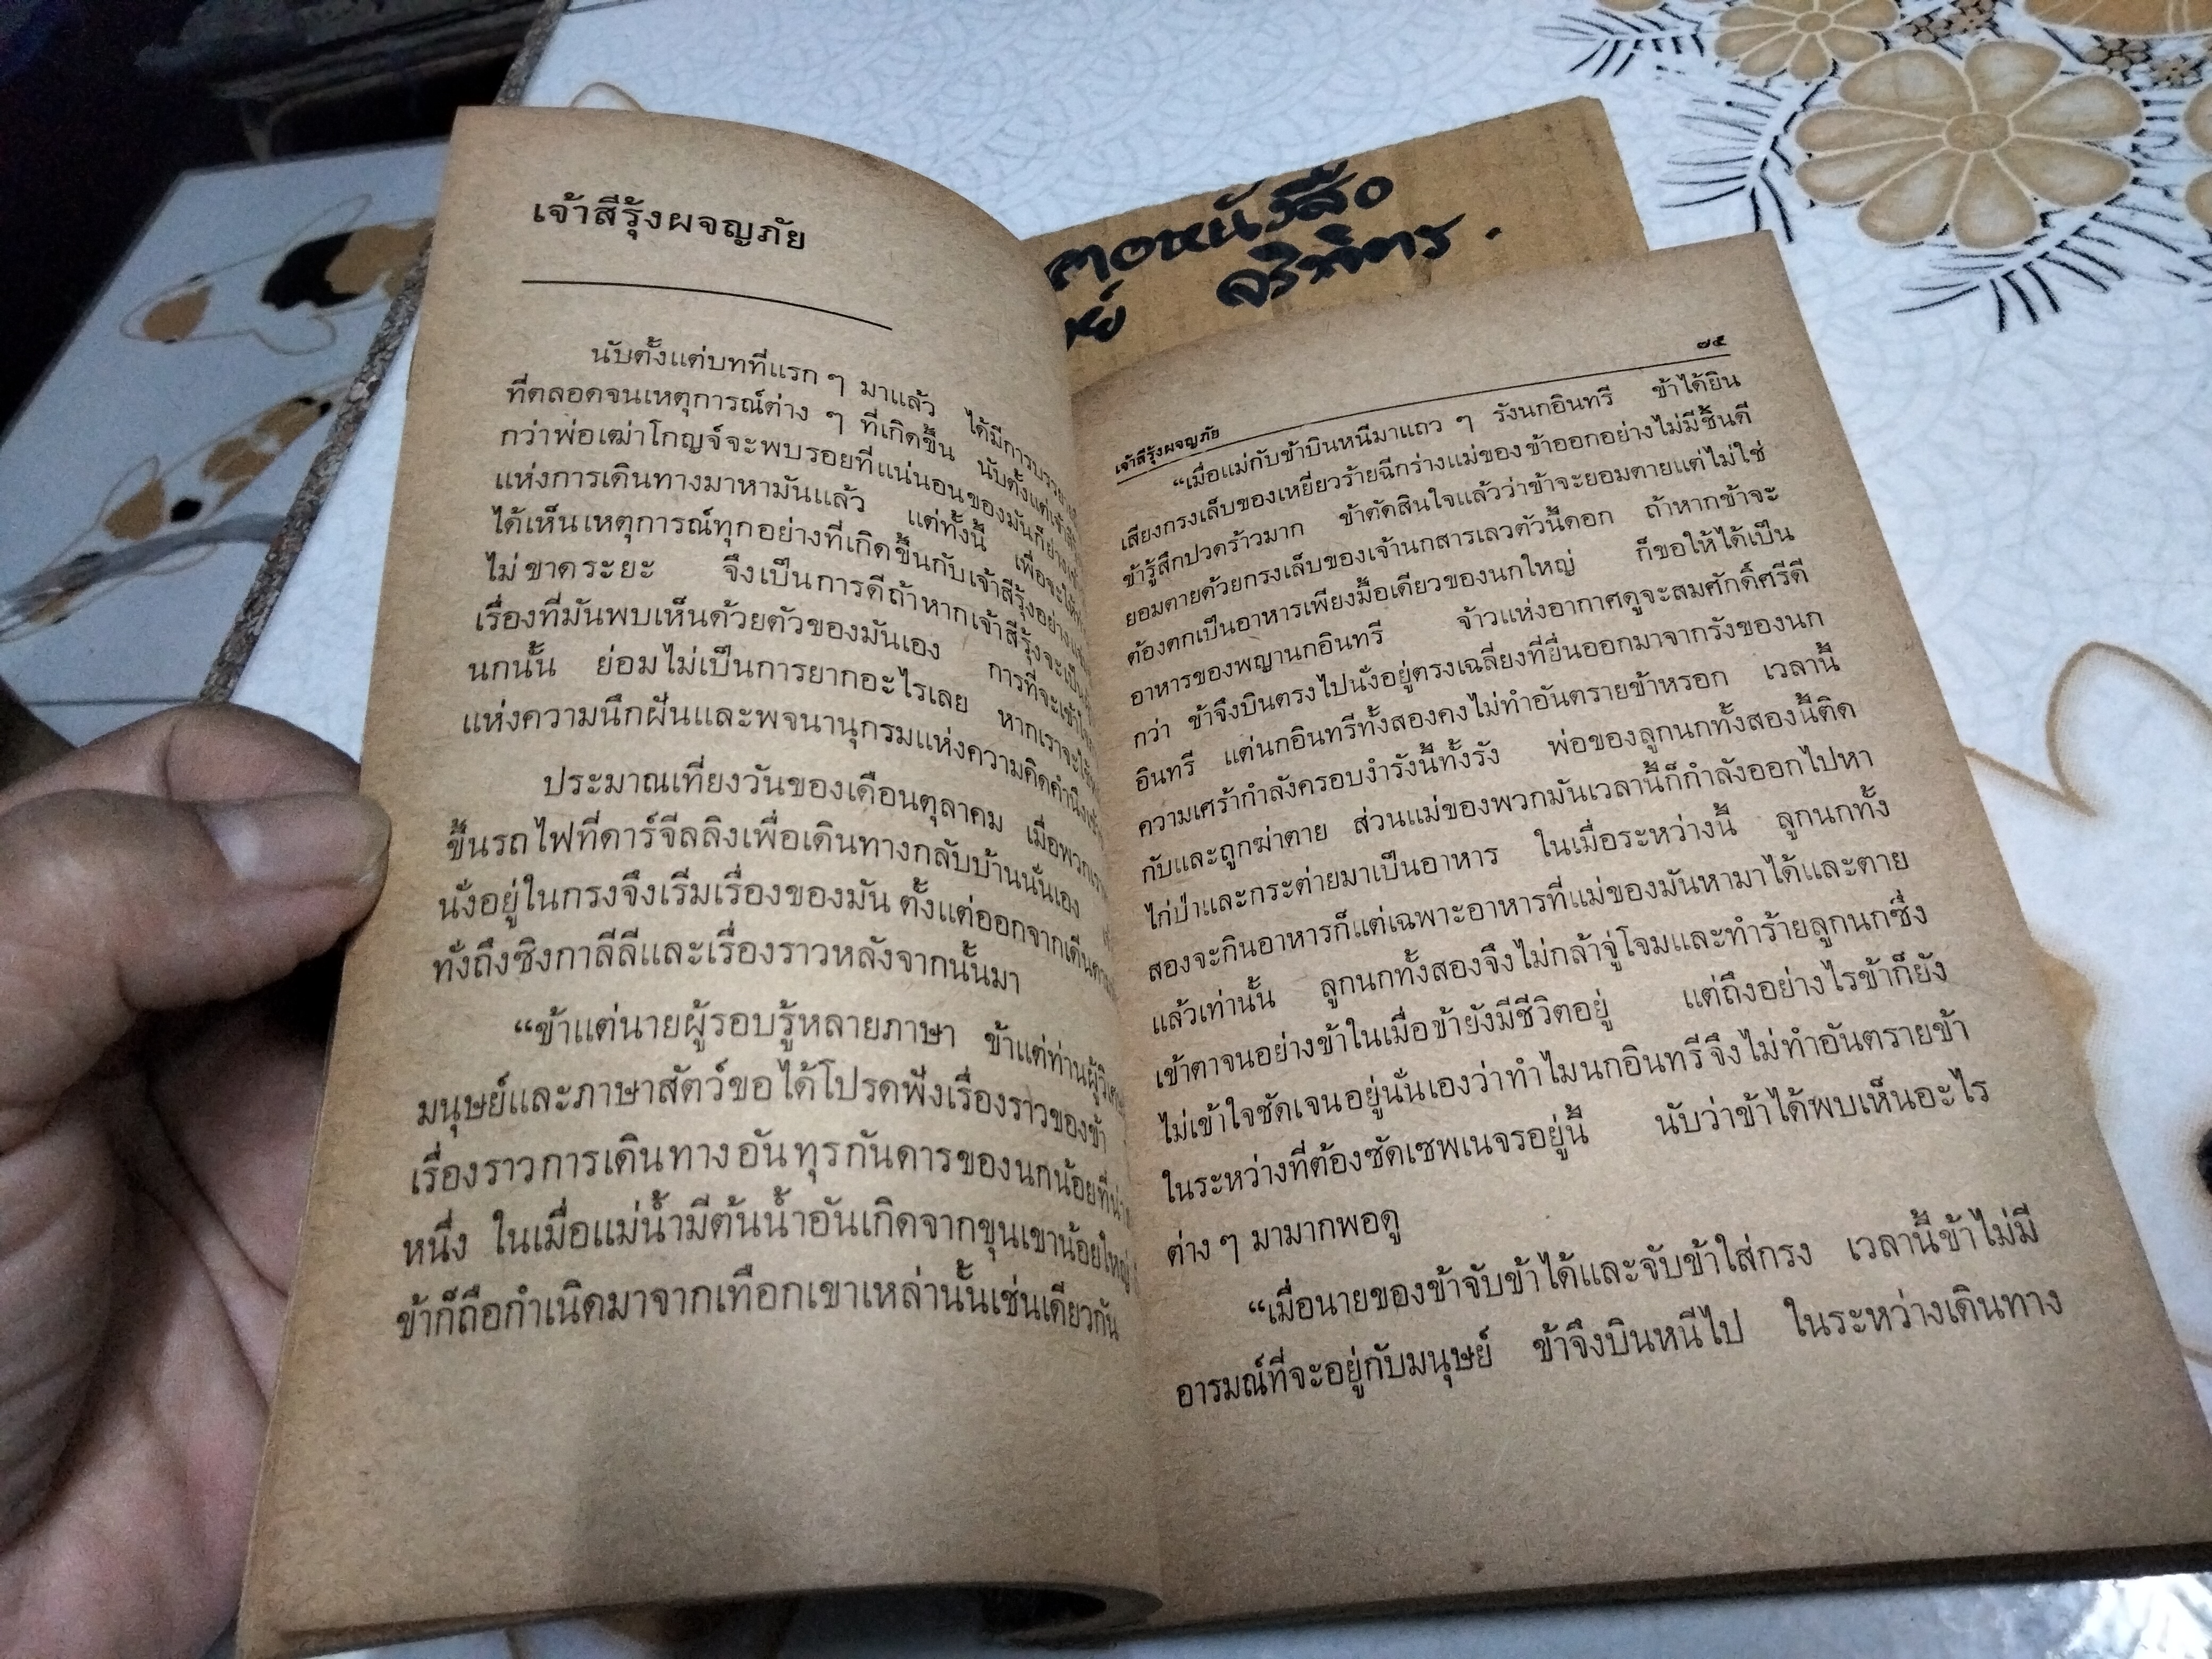 เจ้าสีรุ้งผจญภัย
นับตั้งแต่บทที่แรก ๆ มาแล้ว ได้มีการบรรยาย
ที่ตลอดจนเหตุการณ์ต่าง ๆ ที่เกิดขึ้น นับตั้งแต่
กว่าพ่อเฒ่าโกญจ์จะพบรอยที่แน่นอนของมันก็
แห่งการเดินทางมาหามันแล้ว แต่ทั้งนี้ เพื่อจะให้
ได้เห็นเหตุการณ์ทุกอย่างที่เกิดขึ้นกับเจ้าสีรุ้งอย่าง
ไม่ขาดระยะ จึงเป็นการดีถ้าหากเจ้าสีรุ้งจะเป็น
เรื่องที่มันพบเห็นด้วยตัวของมันเอง การที่จะเข้าใจ
นกนั้น ย่อมไม่เป็นการยากอะไรเลย หากเราจะใช้
แห่งความนึกฝันและพจนานุกรมแห่งความคิดคำนึง
ประมาณเที่ยงวันของเดือนตุลาคม เมื่อพวกเรา
ขึ้นรถไฟที่ดาร์จีลลิงเพื่อเดินทางกลับบ้านนั่นเอง
นั่งอยู่ในกรงจึงเริ่มเรื่องของมัน ตั้งแต่ออกจาก
ทั่งถึงซิงกาลีลีและเรื่องราวหลังจากนั้นมา
“ข้าแต่นายผู้รอบรู้หลายภาษา ข้าแต่ท่านผู้
มนุษย์และภาษาสัตว์ขอได้โปรดฟังเรื่องราวของข้า
เรื่องราวการเดินทางอันทุรกันดารของนกน้อยที่
หนึ่ง ในเมื่อแม่น้ำมีต้นน้ำอันเกิดจากขุนเขาน้อยใหญ่
ข้าก็ถือกำเนิดมาจากเทือกเขาเหล่านั้นเช่นเดียวกัน
๗๕
เจ้าสีรุ้งผจญภัย
“เมื่อแม่กับข้าบินหนีมาแถว ๆ รังนกอินทรี ข้าได้ยิน
เสียงกรงเล็บของเหยี่ยวร้ายฉีกร่างแม่ของข้าออกอย่างไม่มีชิ้นดี
ข้ารู้สึกปวดร้าวมาก ข้าตัดสินใจแล้วว่าข้าจะยอมตายแต่ไม่ใช่
ยอมตายด้วยกรงเล็บของเจ้านกสารเลวตัวนี้ดอก ถ้าหากข้าจะ
ต้องตกเป็นอาหารเพียงมื้อเดียวของนกใหญ่ ก็ขอให้ได้เป็น
อาหารของพญานกอินทรี จ้าวแห่งอากาศดูจะสมศักดิ์ศรีดี
กว่า ข้าจึงบินตรงไปนั่งอยู่ตรงเฉลี่ยงที่ยื่นออกมาจากรังของนก
อินทรี แต่นกอินทรีทั้งสองคงไม่ทำอันตรายข้าหรอก เวลานี้
ความเศร้ากำลังครอบงำรังนี้ทั้งรัง พ่อของลูกนกทั้งสองนี้ติด
กับและถูกฆ่าตาย ส่วนแม่ของพวกมันเวลานี้ก็กำลังออกไปหา
ไก่ป่าและกระต่ายมาเป็นอาหาร ในเมื่อระหว่างนี้ ลูกนกทั้ง
สองจะกินอาหารก็แต่เฉพาะอาหารที่แม่ของมันหามาได้และตาย
แล้วเท่านั้น ลูกนกทั้งสองจึงไม่กล้าจู่โจมและทำร้ายลูกนกซึ่ง
เข้าตาจนอย่างข้าในเมื่อข้ายังมีชีวิตอยู่ แต่ถึงอย่างไรข้าก็ยัง
ไม่เข้าใจชัดเจนอยู่นั่นเองว่าทำไมนกอินทรีจึงไม่ทำอันตรายข้า
ในระหว่างที่ต้องซัดเซพเนจรอยู่นี้ นับว่าข้าได้พบเห็นอะไร
ต่าง ๆ มามากพอดู
“เมื่อนายของข้าจับข้าได้และจับข้าใส่กรง เวลานี้ข้าไม่มี
อารมณ์ที่จะอยู่กับมนุษย์ ข้าจึงบินหนีไป ในระหว่างเดินทาง